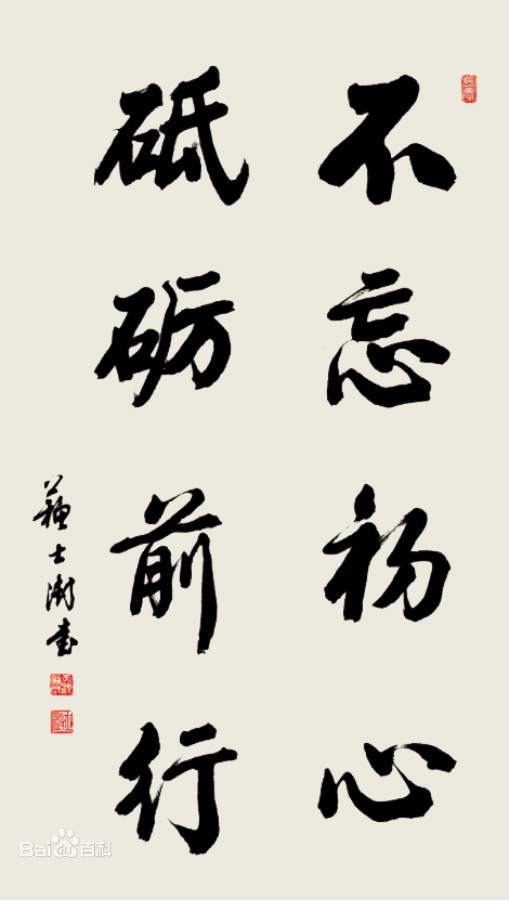 不忘初心
砥砺前行
苏士澍书
Bai百科